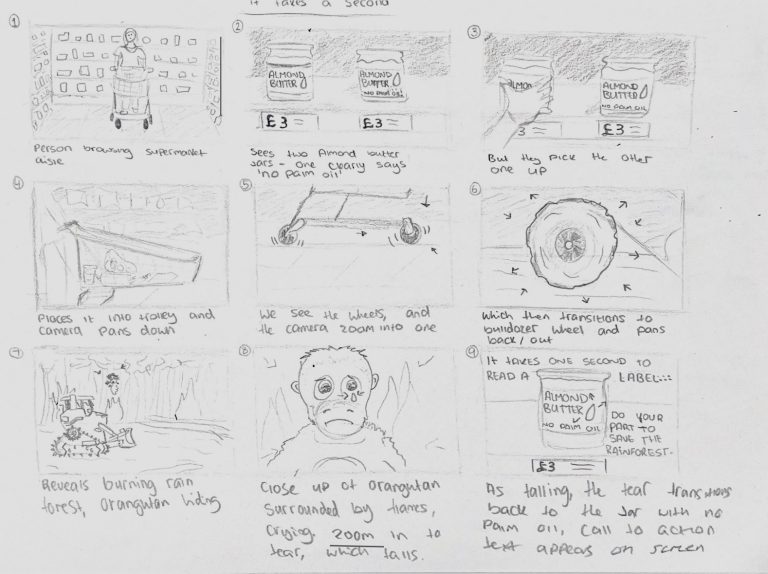 It takes a second
1
Person browsing supermarket
aisle
2
ALMOND
BUTTER
£3
ALMOND
BUTTER
NO PALM OIL
£3
Sees two Almond butter
jars - one clearly says
'no palm oil'
3
ALMON
3
ALMOND
BUTTER
NO PALM OIL
£3
But they pick the other
one up
4
Places it into trolley and
camera pans down
5
We see the wheels, and
the camera zoom into one
6
Which then transitions to
bulldozer wheel and pans
back/out
7
Reveals burning rain
forest, orangutan hiding
8
Close up of orangutan
surrounded by flames,
crying. zoom in to
tear, which falls.
9
IT TAKES ONE SECOND TO
READ A LABEL...
ALMOND
BUTTER
NO PALM OIL
£3
DO YOUR
PART TO
SAVE THE
RAINFOREST.
As falling, the tear transitions
back to the jar with no
palm oil, call to action
text appears on screen